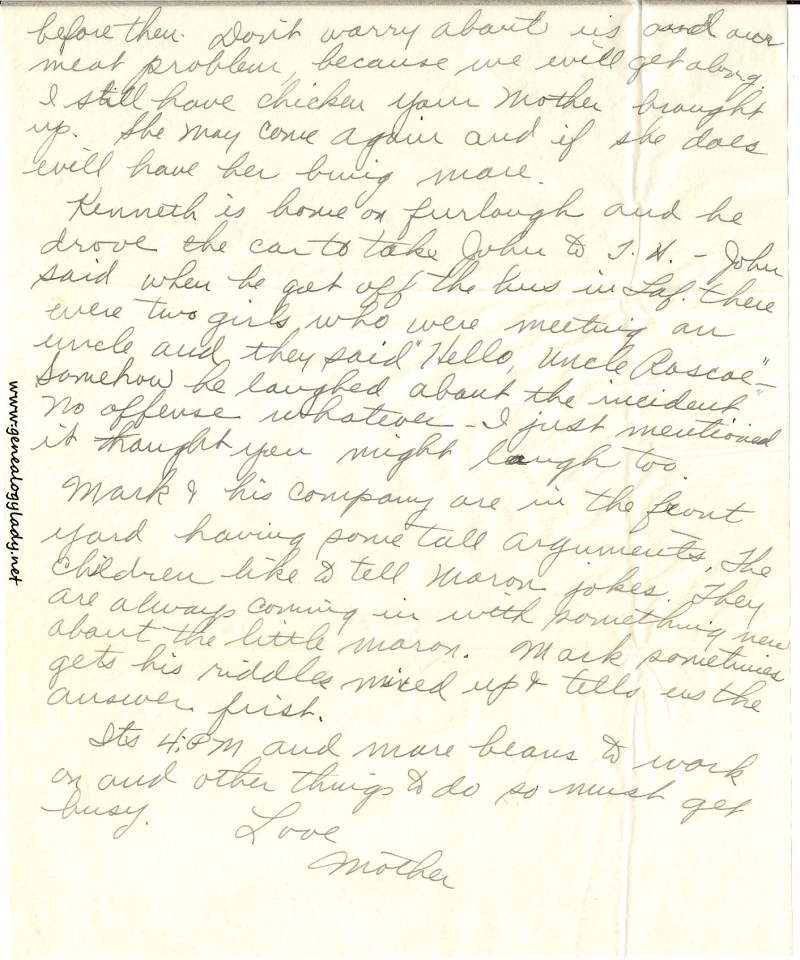 before then. Don't worry about us and our
meat problem, because we will get along.
I still have chicken your Mother brought
up. She may come again and if she does
will have her bring more.
Kenneth is home on furlough and he
drove the car to take John to T. H. - John
said when he got off the bus in Laf. there
were two girls who were meeting an
uncle and they said "Hello, Uncle Roscoe" -
Somehow he laughed about the incident
No offense whatever - I just mentioned
it thought you might laugh too.
Mark & his company are in the front
yard having some tall arguments. The
children like to tell Moron jokes. They
are always coming in with something new
about the little moron. Mark sometimes
gets his riddles mixed up & tells us the
answer first.
Its 4:PM and more beans to work
on and other things to do so must get
busy. Love
Mother
www.genealogylady.net